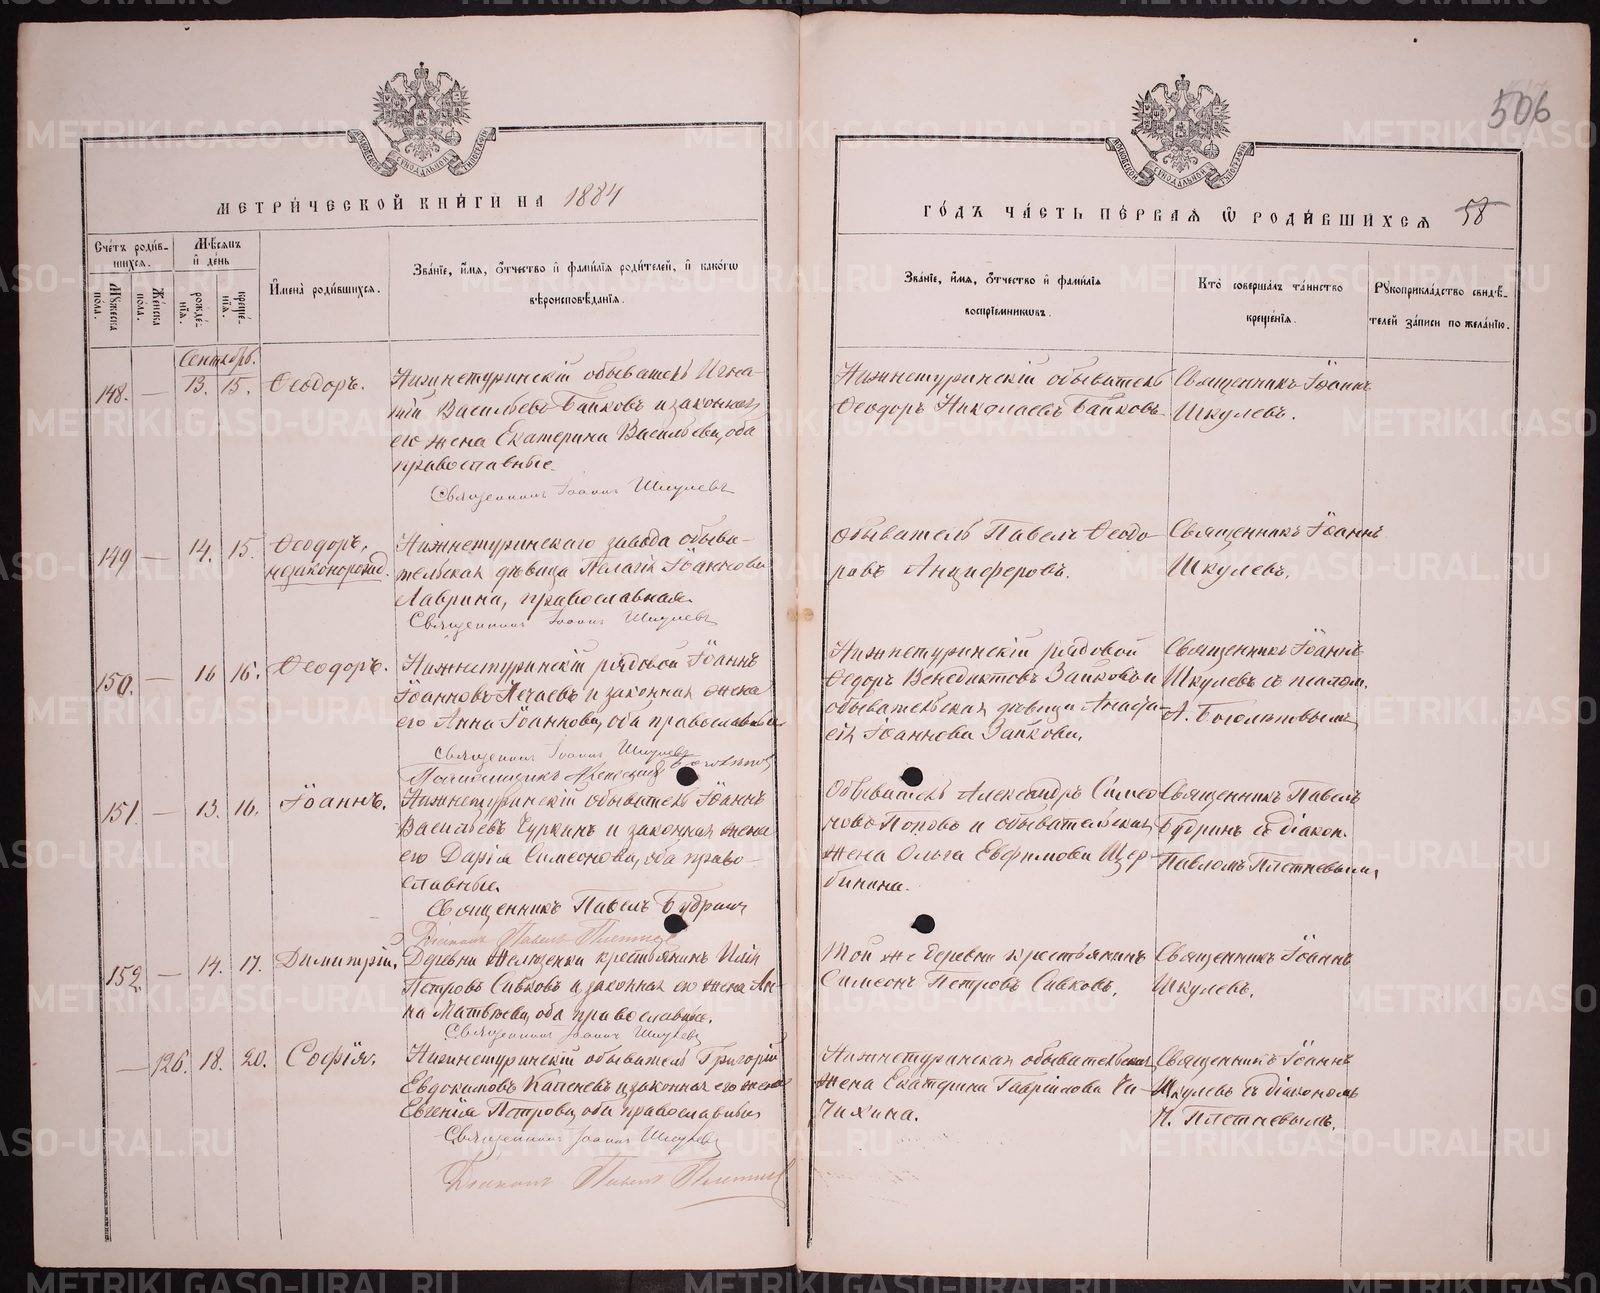 506
МЕТРИ́ЧЕСКОЙ КНИ́ГИ НА 1884
ГО́ДЪ ЧА́СТЬ ПЕ́РВАЯ Ѡ РОДИ́ВШИХСЯ 58
Сче́тъ роди́в-
шихся.
Му́жеска по́ла.
Же́нска по́ла.
Мѣ́сяцъ
и де́нь
рожде́-
нїя.
креще́-
нїя.
И҆мена̀ роди́вшихся.
Зва́нїе, и҆́мя, ѻ҆́тчество и҆ фами́лїя роди́телей, и҆ како́гѡ
вѣроисповѣ́данїя.
Зва́нїе, и҆́мя, ѻ҆́тчество и҆ фами́лїя
воспрїе́мникѡвъ.
Кто̀ соверша́лъ та́инство
креще́нїя.
Рукоприкла́дство свидѣ́-
телей за́писи по жела́нїю.
Сентябрь.
148. — 13. 15. Ѳеодоръ.
Нижнетуринскій обыватель Игна-
тій Васильевъ Байковъ и законная
его жена Екатерина Васильева, оба
православные.
Священникъ Іоаннъ Шкулевъ
Нижнетуринскій обыватель
Ѳеодоръ Николаевъ Байковъ.
Священникъ Іоаннъ
Шкулевъ.
149 — 14. 15. Ѳеодоръ,
незаконорожд.
Нижнетуринскаго завода обыва-
тельская дѣвица Пелагія Іоаннова
Лаврина, православная.
Священникъ Іоаннъ Шкулевъ
Обыватель Павелъ Ѳеодо-
ровъ Анциферовъ.
Священникъ Іоаннъ
Шкулевъ.
150. — 16 16. Ѳеодоръ.
Нижнетуринскій рядовой Іоаннъ
Іоанновъ Нечаевъ и законная жена
его Анна Іоаннова, оба православные
Священникъ Іоаннъ Шкулевъ
Нижнетуринскій рядовой
Ѳедоръ Венедиктовъ Зайковъ и
обывательская дѣвица Анаста-
сія Іоаннова Зайкова.
Священникъ Іоаннъ
Шкулевъ съ псалом.
А. Боголѣповымъ
151. — 13. 16. Іоаннъ.
Нижнетуринскій обыватель Іоаннъ
Васильевъ Чуркинъ и законная жена
его Дарія Симеонова, оба право-
славные.
Священникъ Павелъ Бѹдринъ
Діаконъ Павелъ Плетневъ
Обыватель Александръ Симео-
новъ Поповъ и обывательская
жена Ольга Евфимова Щер-
бинина.
Священникъ Павелъ
Бѹдринъ съ діакон.
Павломъ Плетневымъ,
152. — 14. 17. Димитрій.
Деревни Желѣзенки крестьянинъ Илія
Петровъ Сивковъ и законная его жена Ан-
на Матвѣева, оба православные.
Священникъ Іоаннъ Шкулевъ
Той же деревни крестьянинъ
Симеонъ Петровъ Сивковъ.
Священникъ Іоаннъ
Шкулевъ.
— 126. 18. 20. Софія.
Нижнетуринскій обыватель Григорій
Евдокимовъ Капеневъ и законная его жена
Евгенія Петрова, оба православные
Священникъ Іоаннъ Шкулевъ
Діаконъ Павелъ Плетневъ
Нижнетуринская обывательская
жена Екатерина Гавріилова Чи-
чихина.
Священникъ Іоаннъ
Шкулевъ съ діакономъ
П. Плетневымъ.
METRIKI.GASO-URAL.RU